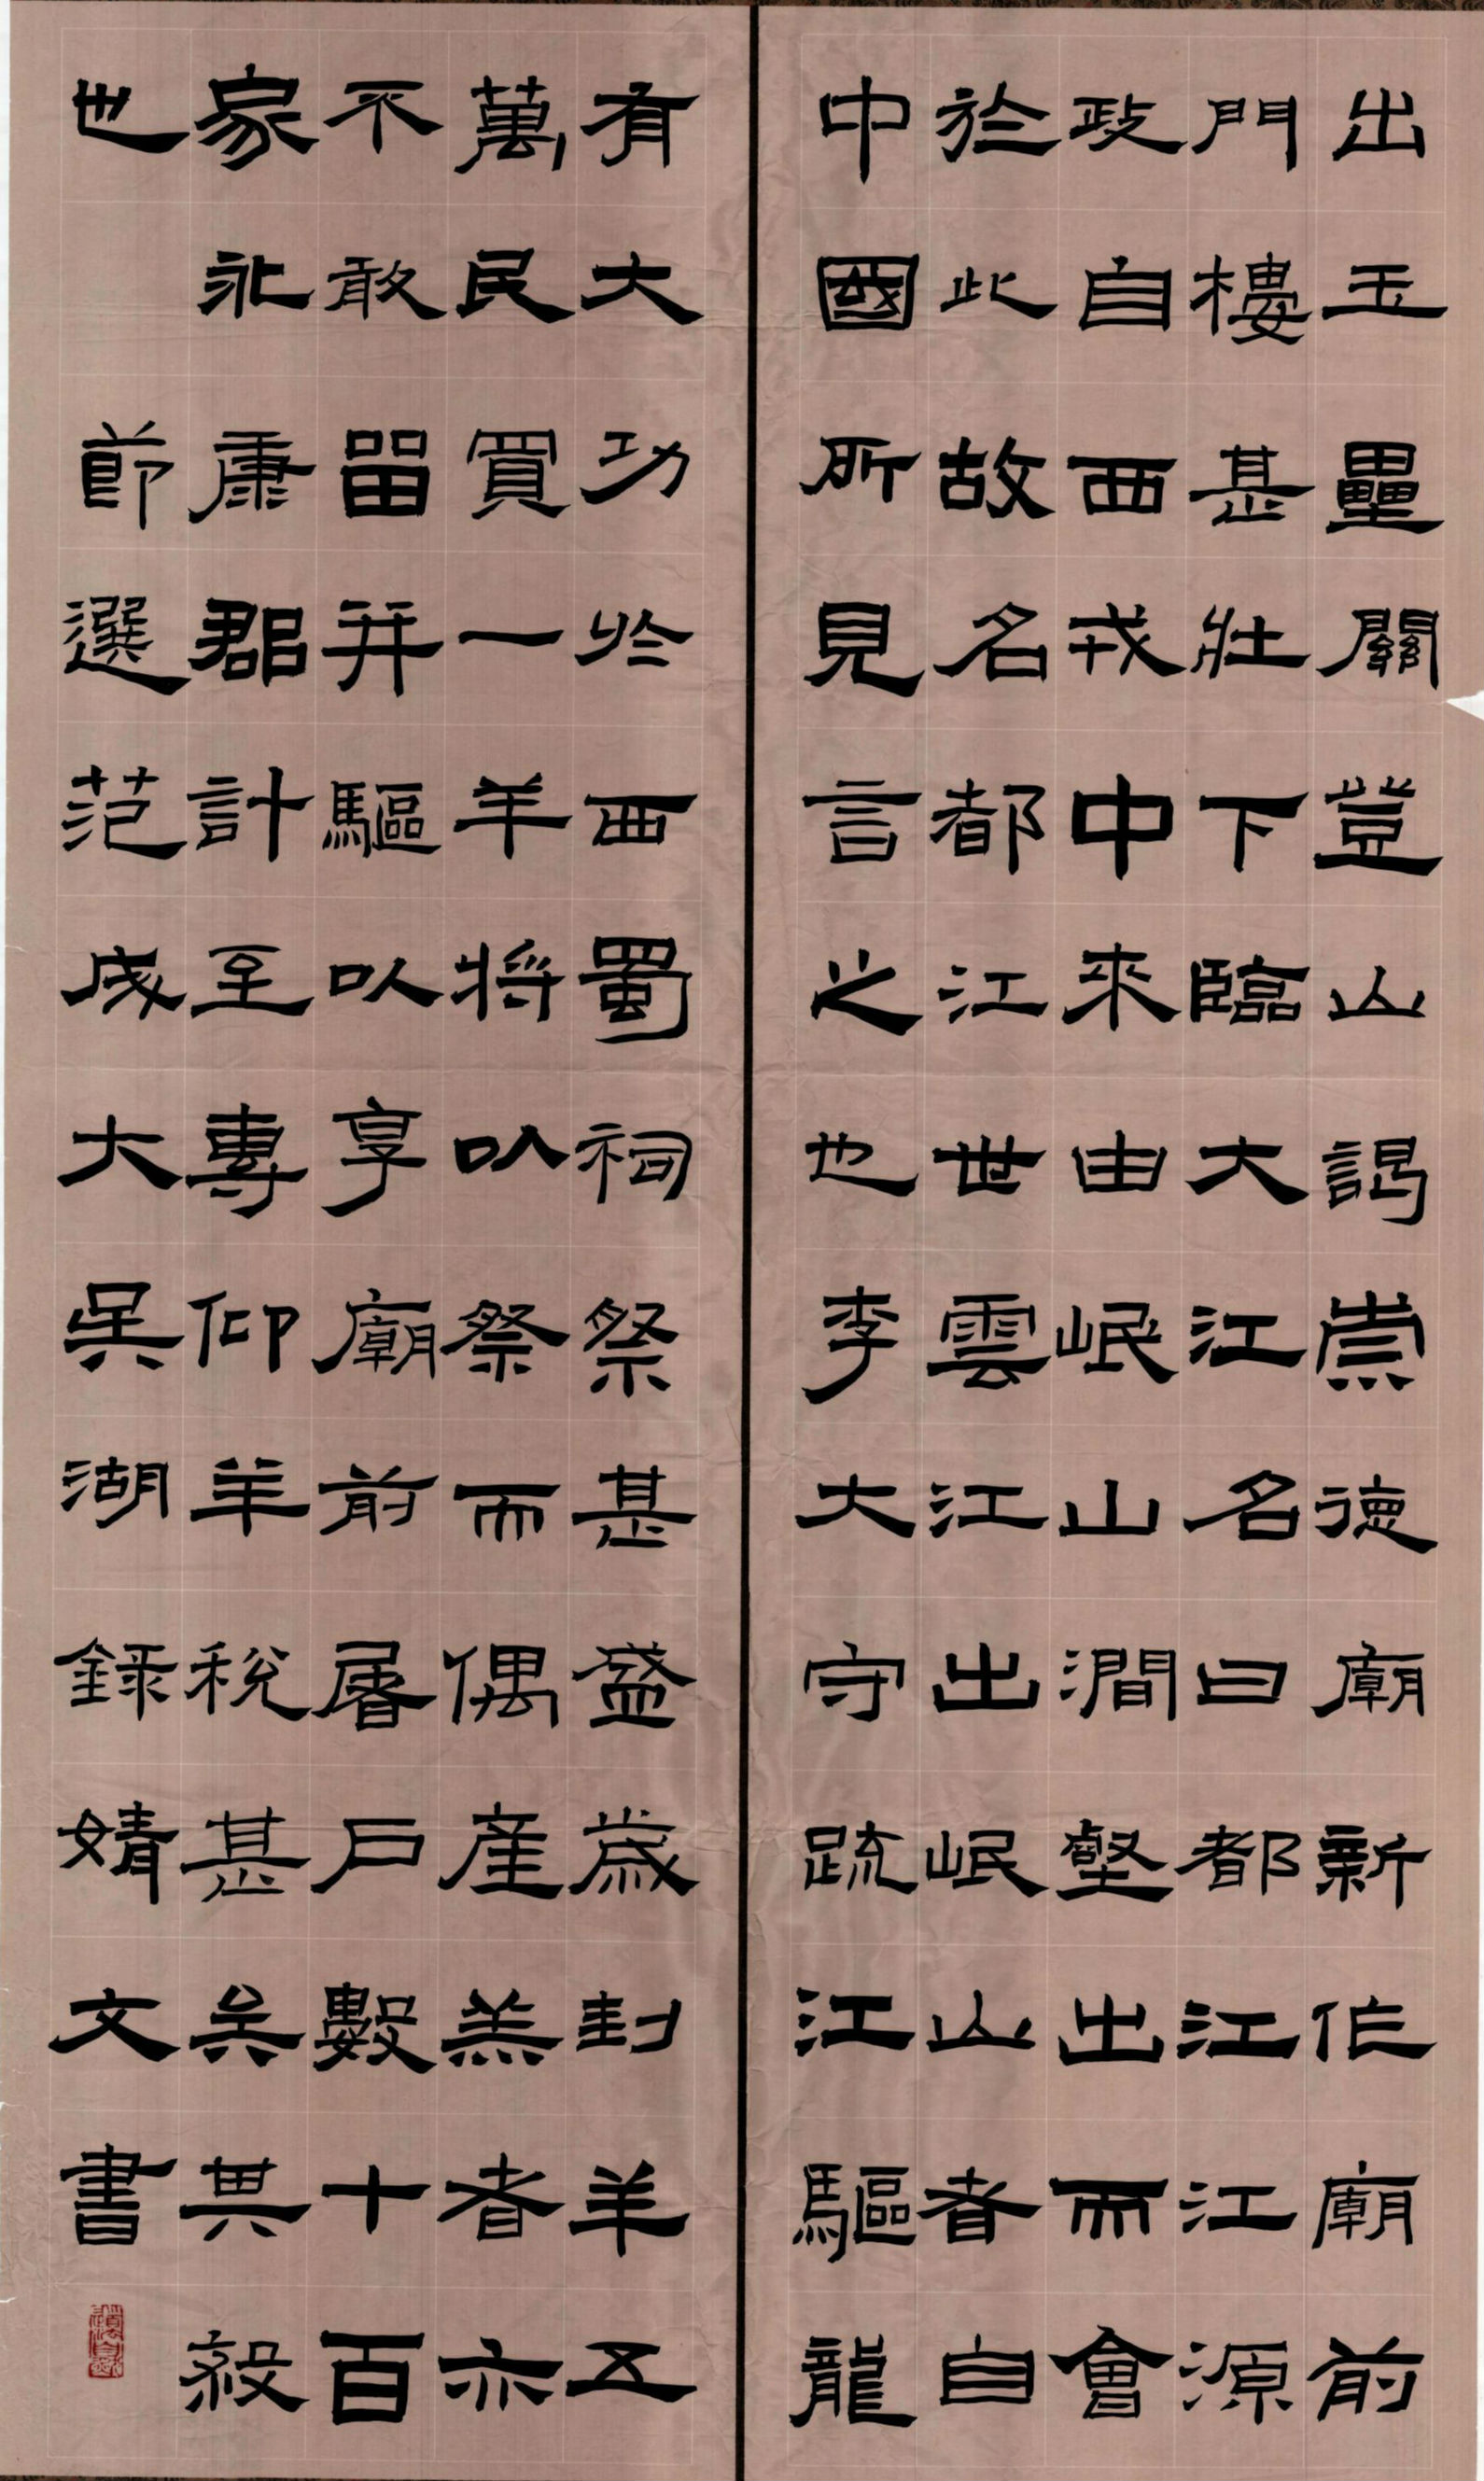 出玉壘關豋山謁崇德廟新作廟前
門樓甚壯下臨大江名曰都江江源
政自西戎中來由岷山澗壑出而會
於此故名都江世云江出岷山者自
中國所見言之也李大守疏江驅龍
有大功於西蜀祠祭甚盛歲封羊五
萬民買一羊將以祭而偶產羔者亦
不敢留并驅以享廟前屠戶數百十
家永康郡計至專仰羊稅甚矣其殺
也 節選范成大吳湖錄婧文書